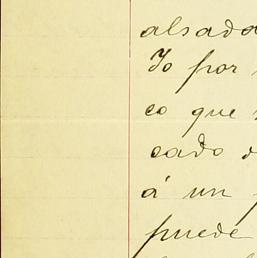 alsada
Yo por
co que
cado d
á un
puede